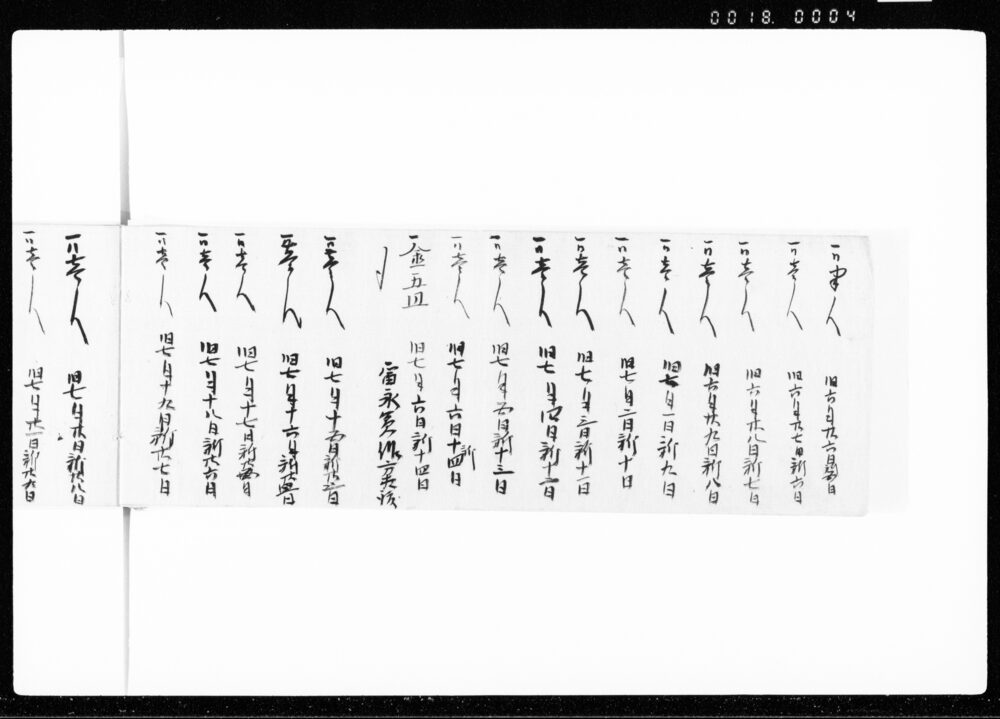 0018. 0004
一〃半人 旧六月廿六日新五日
一〃壱人 旧六月廿七日新六日
一〃壱人 旧六月廿八日新七日
一〃壱人 旧六月廿九日新八日
一〃壱人 旧七月一日新九日
一〃壱人 旧七月二日新十日
一〃壱人 旧七月三日新十一日
一〃壱人 旧七月四日新十二日
一〃壱人 旧七月五日新十三日
一〃壱人 旧七月六日新十四日
一金五円 旧七月六日新十四日
富永
一〃壱人 旧七月十五日新廿三日
一〃壱人 旧七月十六日新廿四日
一〃壱人 旧七月十七日新廿五日
一〃壱人 旧七月十八日新廿六日
一〃壱人 旧七月十九日新廿七日
一〃壱人 旧七月廿日新廿八日
一〃壱人 旧七月廿一日新廿九日